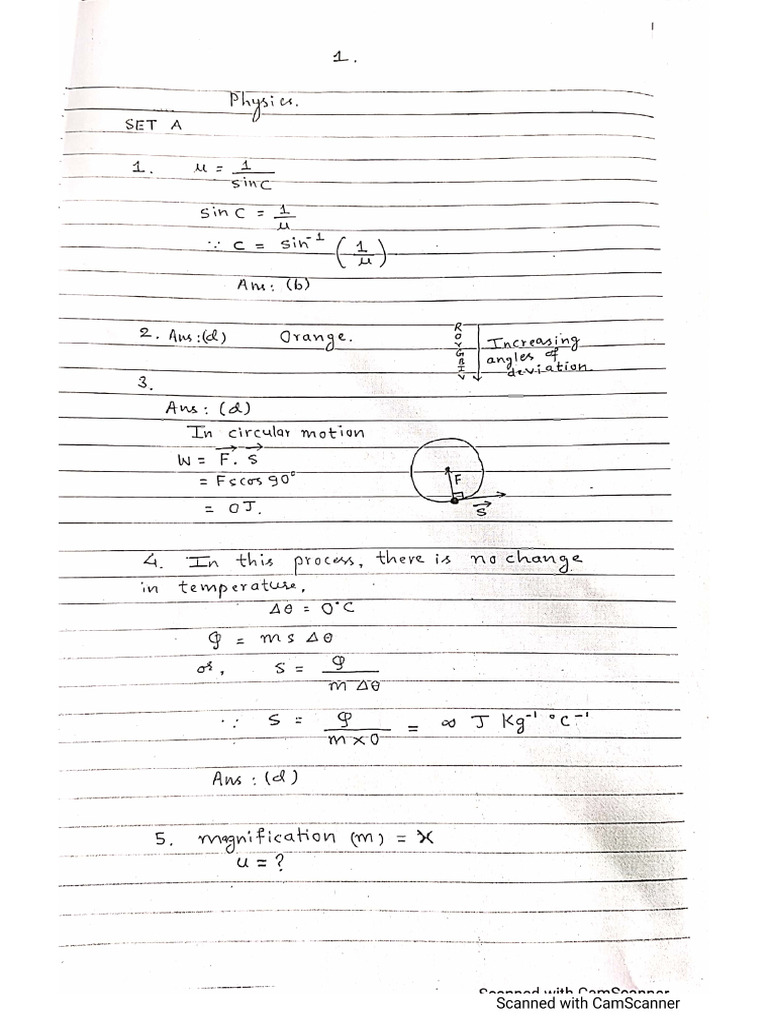 1
1.
Physics.
SET A
1. μ = 1/sinC
sin C = 1/μ
∵ C = sin⁻¹ (1/μ)
Ans: (b)
2. Ans:(d) Orange.
ROYGBIV
Increasing
angles of
deviation.
3.
Ans: (d)
In circular motion
W = F⃗. S⃗
= Fscos90°
= 0J.
F
S⃗
4. In this process, there is no change
in temperature,
Δθ = 0°C
Q = m s Δθ
or, S = Q/m Δθ
∵ S = Q/m×0 = ∞ J Kg⁻¹ °C⁻¹
Ans: (d)
5. magnification (m) = X
u = ?
Scanned with CamScanner
Scanned with CamScanner